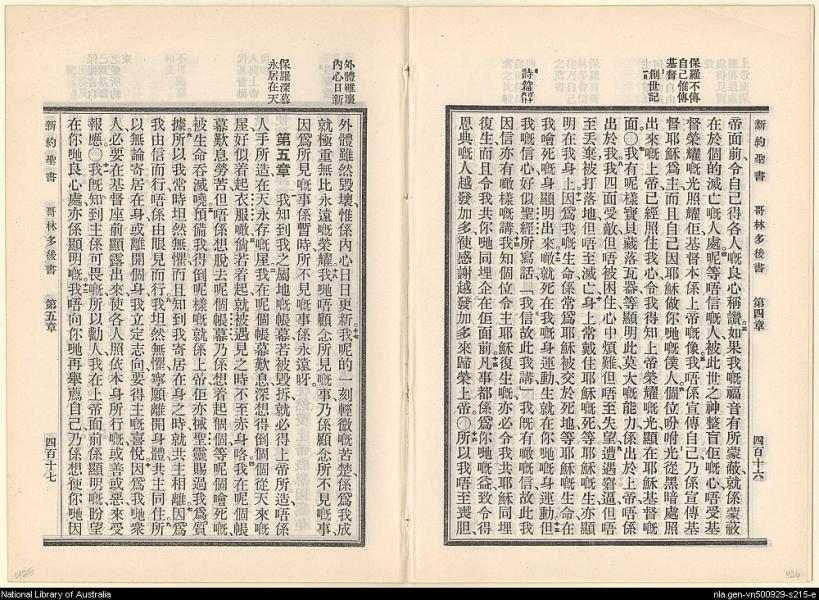 新約聖書 哥林多後書 第四章 四百十六
保羅不傳
自己惟傳
基督
創世記
詩篇
帝面前令自己得各人嘅良心稱讚如果我嘅福音有所蒙蔽就係蒙蔽
在於個的滅亡嘅人處呢等唔信嘅人被此世之神整盲佢嘅心唔受基
督榮耀嘅光照耀佢基督本係上帝嘅像我唔係宣傳自己乃係宣傳基
督耶穌爲主而且自己因耶穌做你哋嘅僕人個位吩咐光從黑暗處照
出來嘅上帝已經照住我心令我得知上帝榮耀嘅光顯在耶穌基督嘅
面○我有呢樣寶貝藏落瓦器等顯明此莫大嘅能力係出於上帝唔係
出於我我四面受敵但唔被困住心中煩難但唔至失望遭遇窘逼但唔
至丟棄被打落地但唔至滅亡身上常戴住耶穌嘅死等耶穌嘅生亦顯
明在我身上因爲我嘅生命係常爲耶穌被交於死地等耶穌嘅生命在
我噲死嘅身顯明出來噉就死在我嘅身運動生就在你哋嘅身運動但
我嘅信心好似聖經所寫話「我信故此我講」我旣有噉嘅信故此我
因信亦有噉樣嘅講我知個位令主耶穌復生嘅亦必令我共耶穌同埋
復生而且令我共你哋同埋企在佢面前凡事都係爲你哋嘅益致令得
恩典嘅人越發加多使感謝越發加多來歸榮上帝○所以我唔至喪胆
外體雖壞
內心日新
保羅深慕
永居在天
外體雖然毀壞惟係內心日日更新我呢的一刻輕微嘅苦楚係爲我成
就極重無比永遠嘅榮耀我哋唔顧念所見嘅事乃係顧念所不見嘅事
因爲所見嘅事係暫時所不見嘅事係永遠呀
第五章 我知到我之屬地嘅帳幕若被毀拆就必得上帝所造唔係
人手所造在天永存嘅屋我在呢個帳幕歎息深想得倒個個從天來嘅
屋好似着起衣服噉倘若着起就被遇見之時不至赤身咯我在呢個帳
幕歎息勞苦但唔係想脫去呢個帳幕乃係想着起個個等呢個噲死嘅
被生命吞滅曉預備我得倒呢樣嘅就係上帝佢亦𢬿聖靈賜過我爲質
據所以我常時坦然無懼而且知到我寄居在身之時就共主相離因爲
我由信而行唔係由眼見而行我坦然無懼寧願離開身體共主同住所
以無論寄居在身或離開個身我立定志向要得主嘅喜悅因爲我哋衆
人必要在基督座前顯露出來使各人照依本身所行嘅或善或惡來受
報應○我旣知到主係可畏嘅所以勸人我在上帝面前係顯明嘅盼望
在你哋良心處亦係顯明嘅我唔向你哋再舉薦自己乃係想使你哋因
新約聖書 哥林多後書 第五章 四百十七
National Library of Australia
nla.gen-vn500929-s215-e